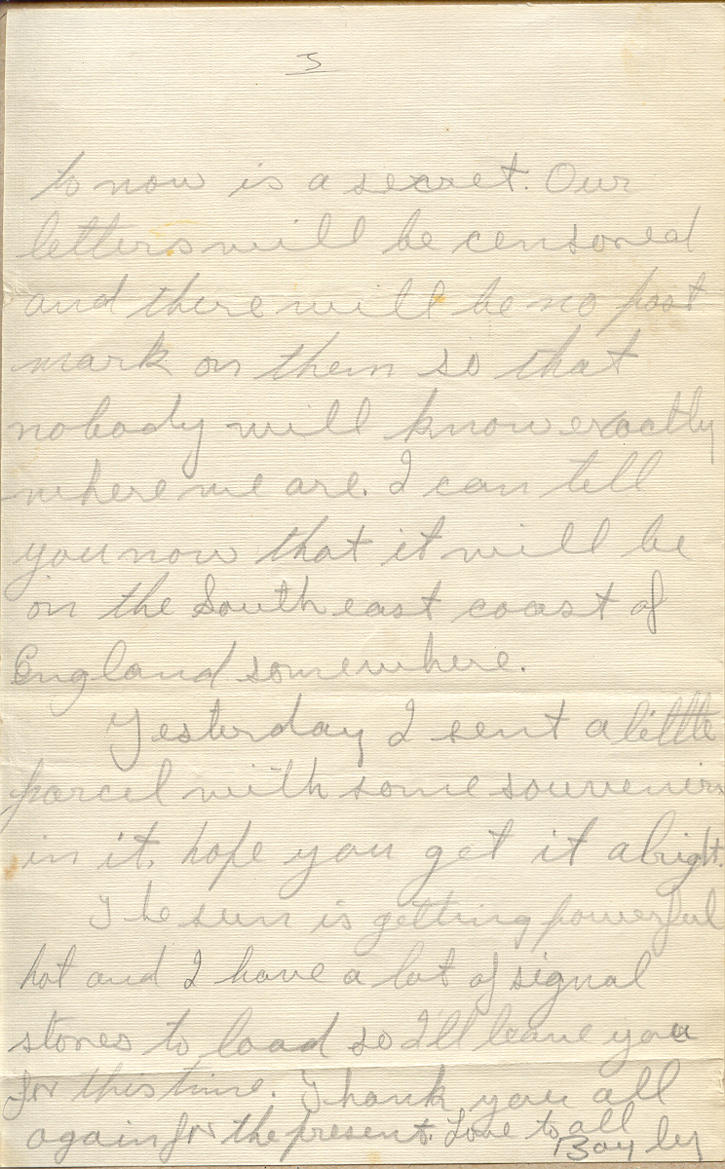 5
to now is a secret. Our
letters will be censored
and there will be no post
mark on them so that
nobody will know exactly
where we are. I can tell
you now that it will be
on the South east coast of
England somewhere.
Yesterday I sent a little
parcel with some souvenirs
in it, hope you get it alright.
The sun is getting powerful
hot and I have a lot of signal
stores to load so I'll leave you
for this time. Thank you all
again for the present. Love to all
Bayley